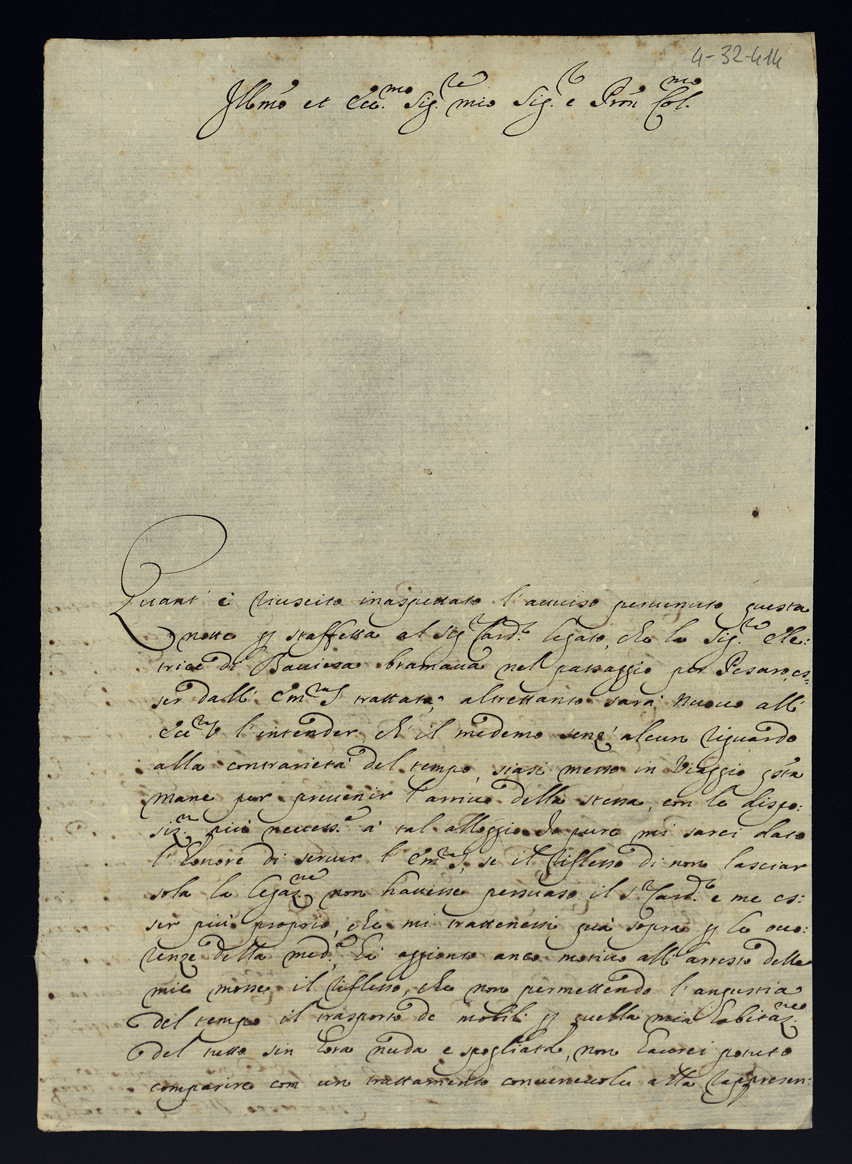 4-32-414
Illmo et Ecc.mo Sig.re mio Sig.r e Pron Col.mo
Quant' è riuscito inaspettato l'avviso pervenuto questa
notte p staffetta al Sig.r Card.l legato, che la Sig.ra Elet-
trice di Baviera bramava nel passaggio per Pesaro es=
ser dall' Em.za S. trattata, altrettanto sarà nuovo all'
Ecc.za V. l'intender ch' il medemo senz' alcun riguardo
alla contrarietà del tempo, siasi messo in Viaggio q.sta
mane per prevenir l'arrivo della stessa, con le dispo:
siz.ni più necess.e à tal alloggio. Io pure mi sarei dato
l'honore di servir l'Em.za S., se il riflesso di non lasciar
sola la legaz.ne non havesse persuaso il s.r Card.l e me es:
ser più proprio, che mi trattenessi quà sopra p le occo:
renze della med.a. Hà aggionto anco motivo all' arresto delle
mie mosse il riflesso, che non permettendo l'angustia
del tempo il trasporto de mobili p quella mia habitaz.ne
del tutto sin hora nuda e spogliata, non haverei potuto
comparire con un trattamento convenevole alla rappresen: